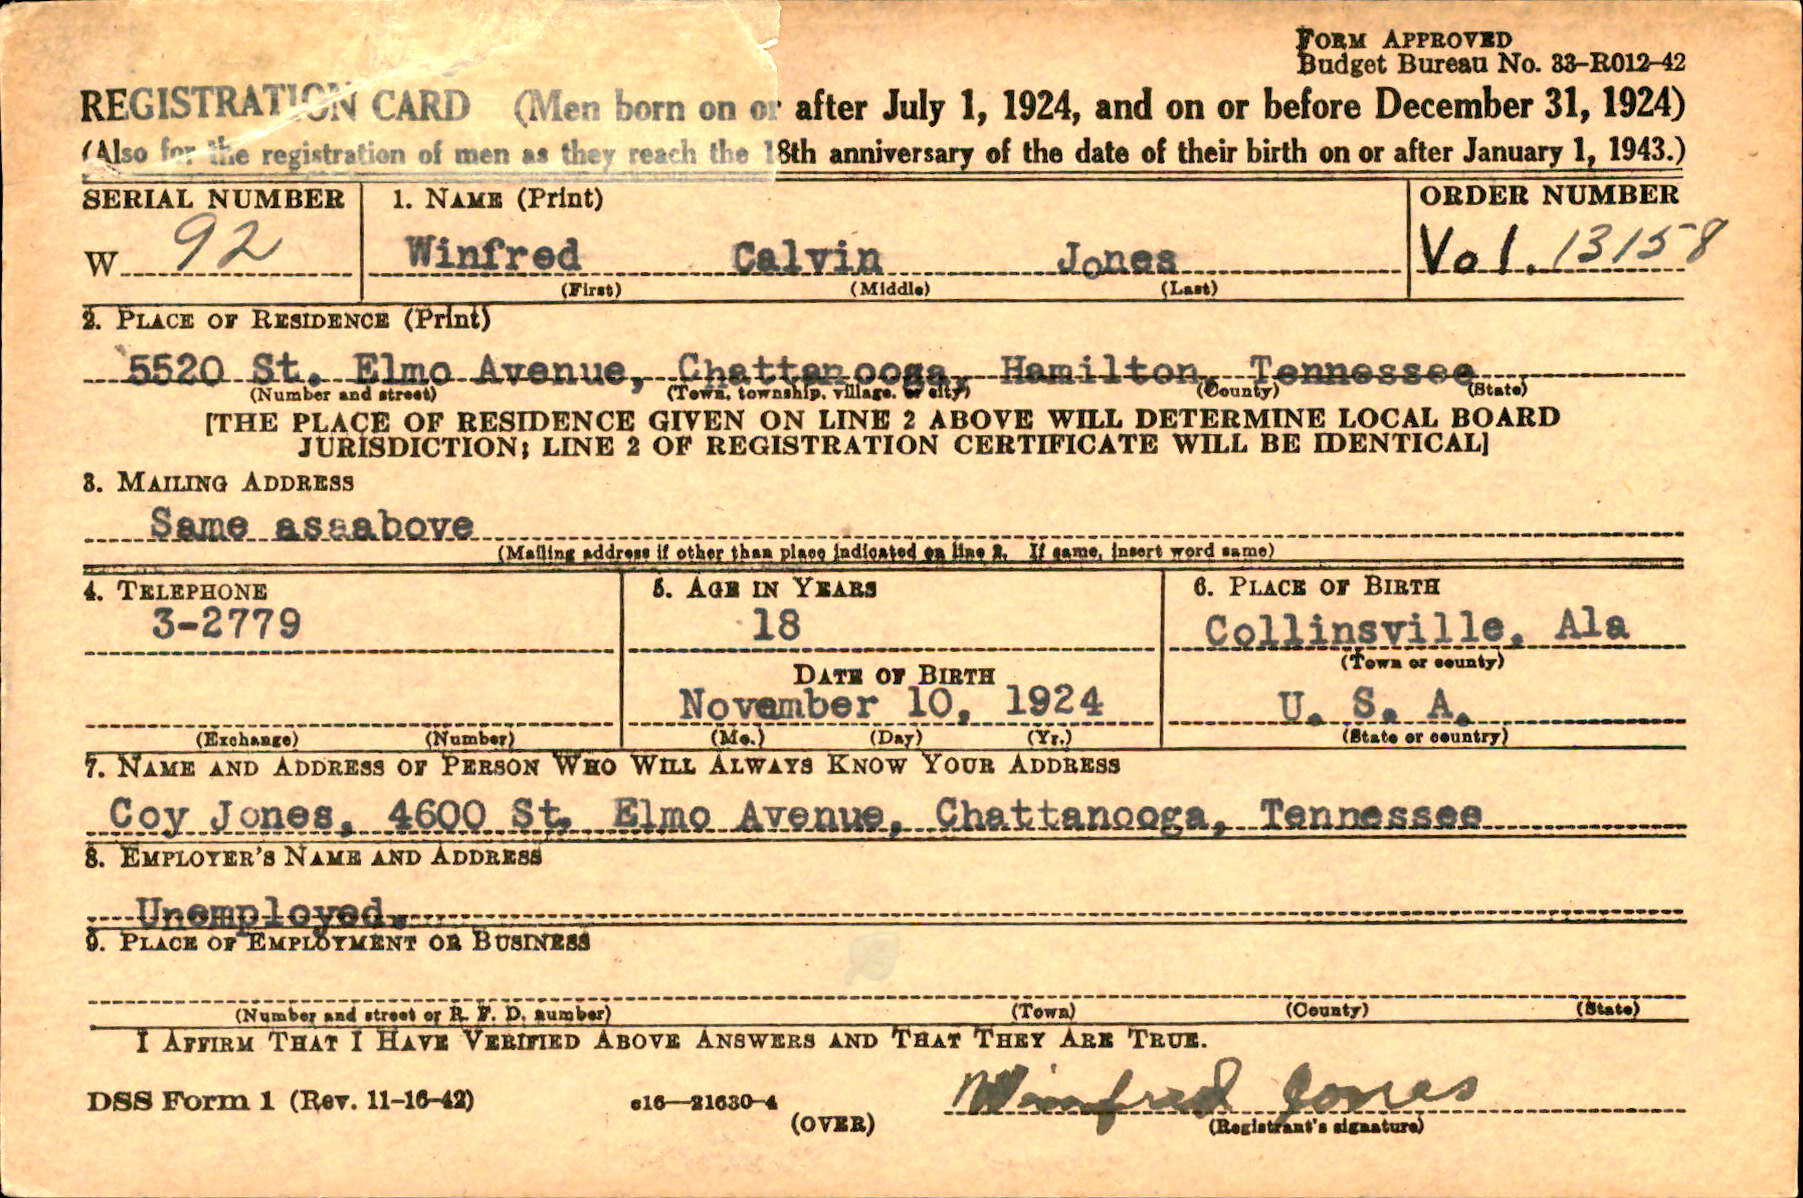 FORM APPROVED
Budget Bureau No. 33-R012-42
REGISTRATION CARD (Men born on or after July 1, 1924, and on or before December 31, 1924)
(Also for the registration of men as they reach the 18th anniversary of the date of their birth on or after January 1, 1943.)
SERIAL NUMBER 1. NAME (Print) ORDER NUMBER
W 92 Winfred Calvin Jones Vol. 13158
(First) (Middle) (Last)
2. PLACE OF RESIDENCE (Print)
5520 St. Elmo Avenue, Chattanooga, Hamilton, Tennessee
(Number and street) (Town, township, village, or city) (County) (State)
[THE PLACE OF RESIDENCE GIVEN ON LINE 2 ABOVE WILL DETERMINE LOCAL BOARD
JURISDICTION; LINE 2 OF REGISTRATION CERTIFICATE WILL BE IDENTICAL]
3. MAILING ADDRESS
Same asaabove
(Mailing address if other than place indicated on line 2. If same, insert word same)
4. TELEPHONE 5. AGE IN YEARS 6. PLACE OF BIRTH
3-2779 18 Collinsville, Ala
(Town or county)
DATE OF BIRTH
November 10, 1924 U. S. A.
(Exchange) (Number) (Mo.) (Day) (Yr.) (State or country)
7. NAME AND ADDRESS OF PERSON WHO WILL ALWAYS KNOW YOUR ADDRESS
Coy Jones, 4600 St. Elmo Avenue, Chattanooga, Tennessee
8. EMPLOYER'S NAME AND ADDRESS
Unemployed.
9. PLACE OF EMPLOYMENT OR BUSINESS
(Number and street or R. F. D. number) (Town) (County) (State)
I AFFIRM THAT I HAVE VERIFIED ABOVE ANSWERS AND THAT THEY ARE TRUE.
DSS Form 1 (Rev. 11-16-42) c16—21630-4 Winfred Jones
(OVER) (Registrant's signature)